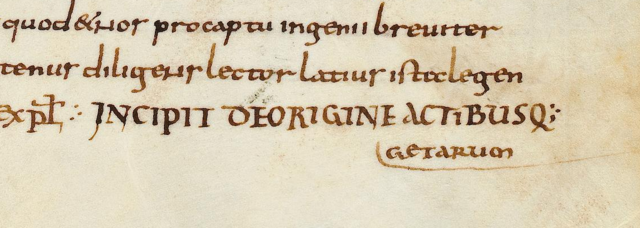 quod&nos procaptu ingenii breuiter
tenus diligens lector latius isteclegen
expl̅ ∴ INCIPIT DEORIGINE ACTIBUSQ;
GETARUM